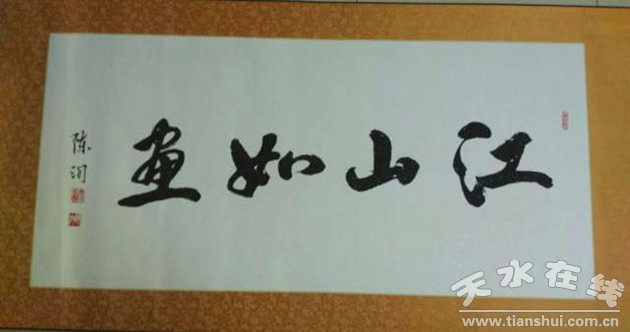 江山如画
陈润
天水在线
www.tianshui.com.cn